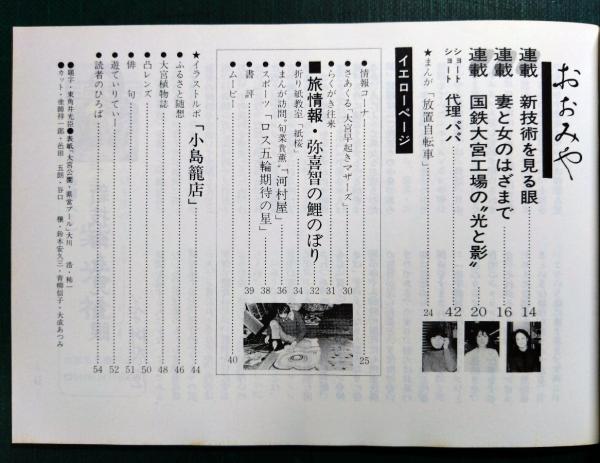 おおみや
連載　新技術を見る眼……14
連載　妻と女のはざまで……16
連載　国鉄大宮工場の〝光と影〟……20
ショートショート　代理パパ……42
★まんが「放置自転車」……24
イエローページ
●情報コーナー……25
●さあくる「大宮早起きマザーズ」……30
●らくがき往来……31
■旅情報・弥喜智の鯉のぼり……32
●折り紙教室「紙桜」……34
●まんが訪問〝旬菜貴薫〟「河村屋」……36
●スポーツ「ロス五輪期待の星」……38
●書評……39
●ムービー……40
★イラストルポ「小島籠店」……44
●ふるさと随想……46
●大宮植物誌……48
●凸レンズ……50
●俳　句……51
●遊てぃりてぃー……52
●読者のひろば……54
●題字・東角井光臣●表紙「大宮公園・県営プール」大川　浩・祐一
●カット・亜師祥一郎・邑田　五朗・谷口　穣・鈴木安久三・青柳信子・大成あつみ